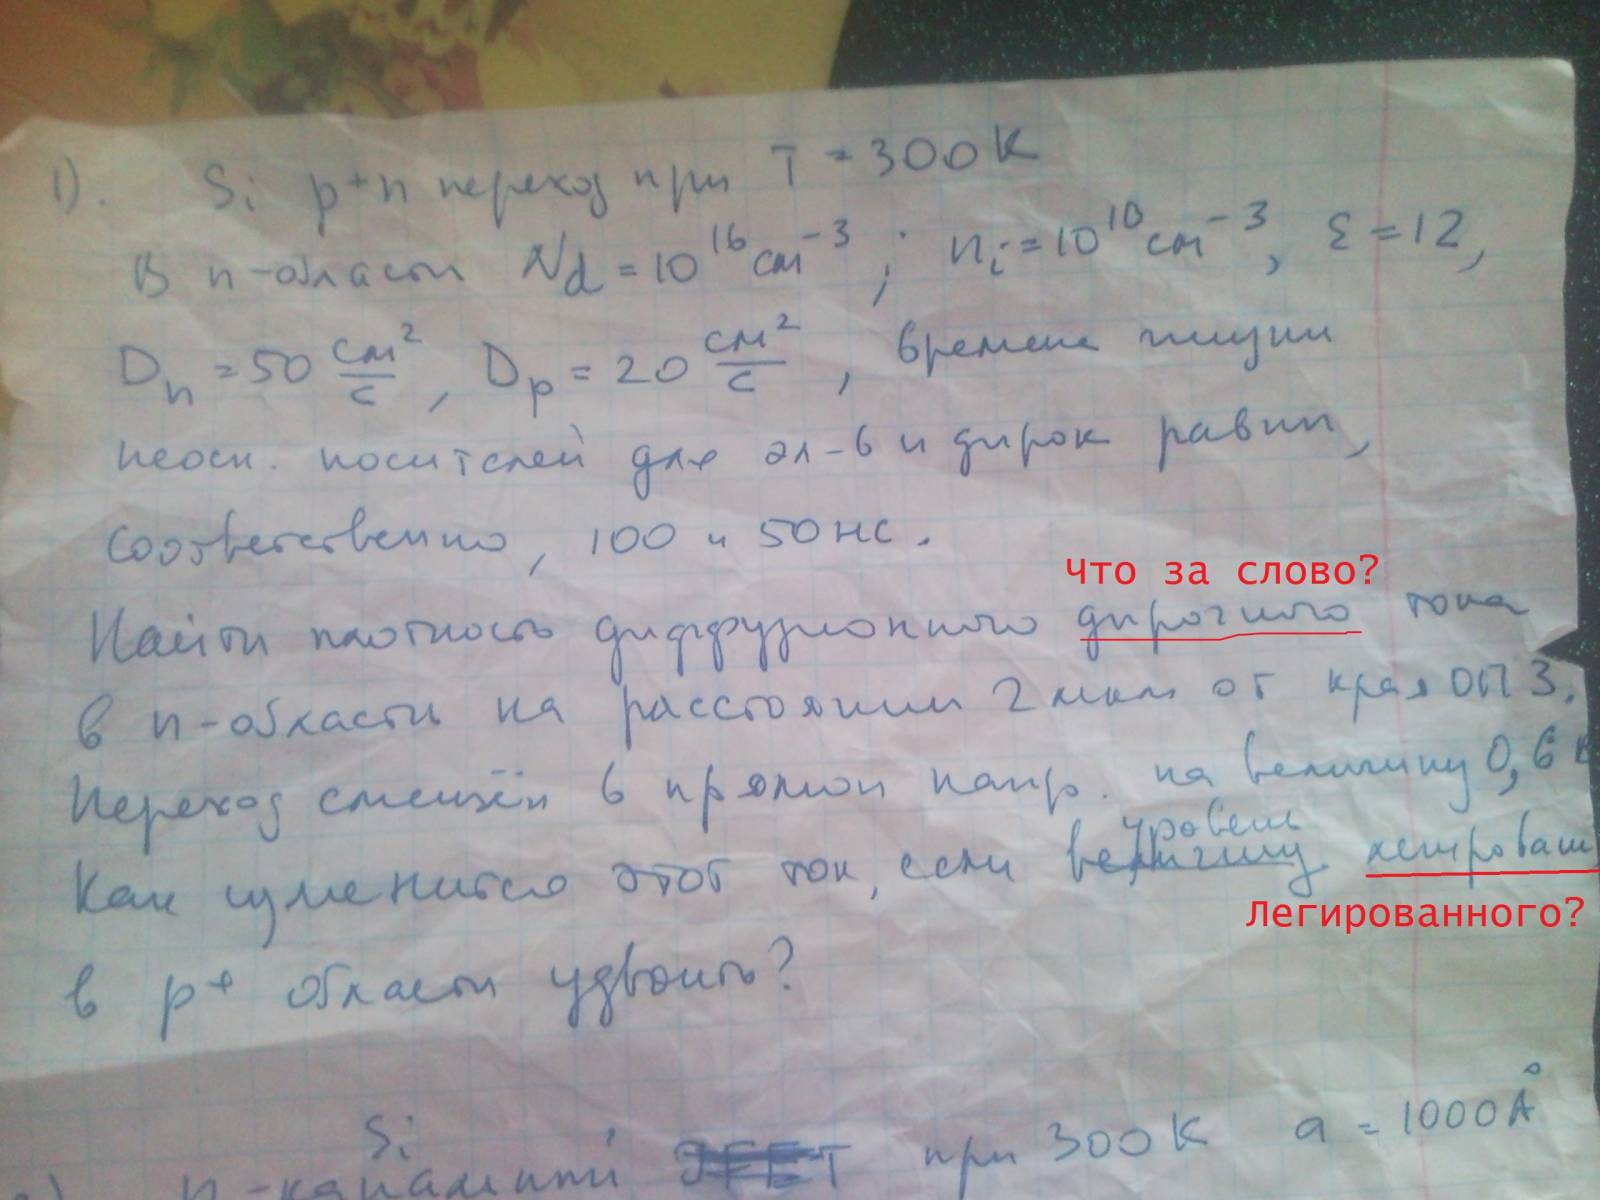 1). Si p+n переход при T = 300К
В n-области Nd = 10¹⁶ см⁻³; ni = 10¹⁰ см⁻³, ε = 12,
Dn = 50 см²/с, Dp = 20 см²/с, времена жизни
неосн. носителей для эл-в и дырок равны,
соответственно, 100 и 50 нс.
Что за слово?
Найти плотность диффузионного дырочного тока
в n-области на расстоянии 2 мкм от края ОПЗ.
Переход смещён в прямом напр. на величину 0,6 В
уровень
Как изменится этот ток, если величину легирования
легированного?
в p+ области удвоить?
Si
n-канальный JFET при 300К a = 1000Å